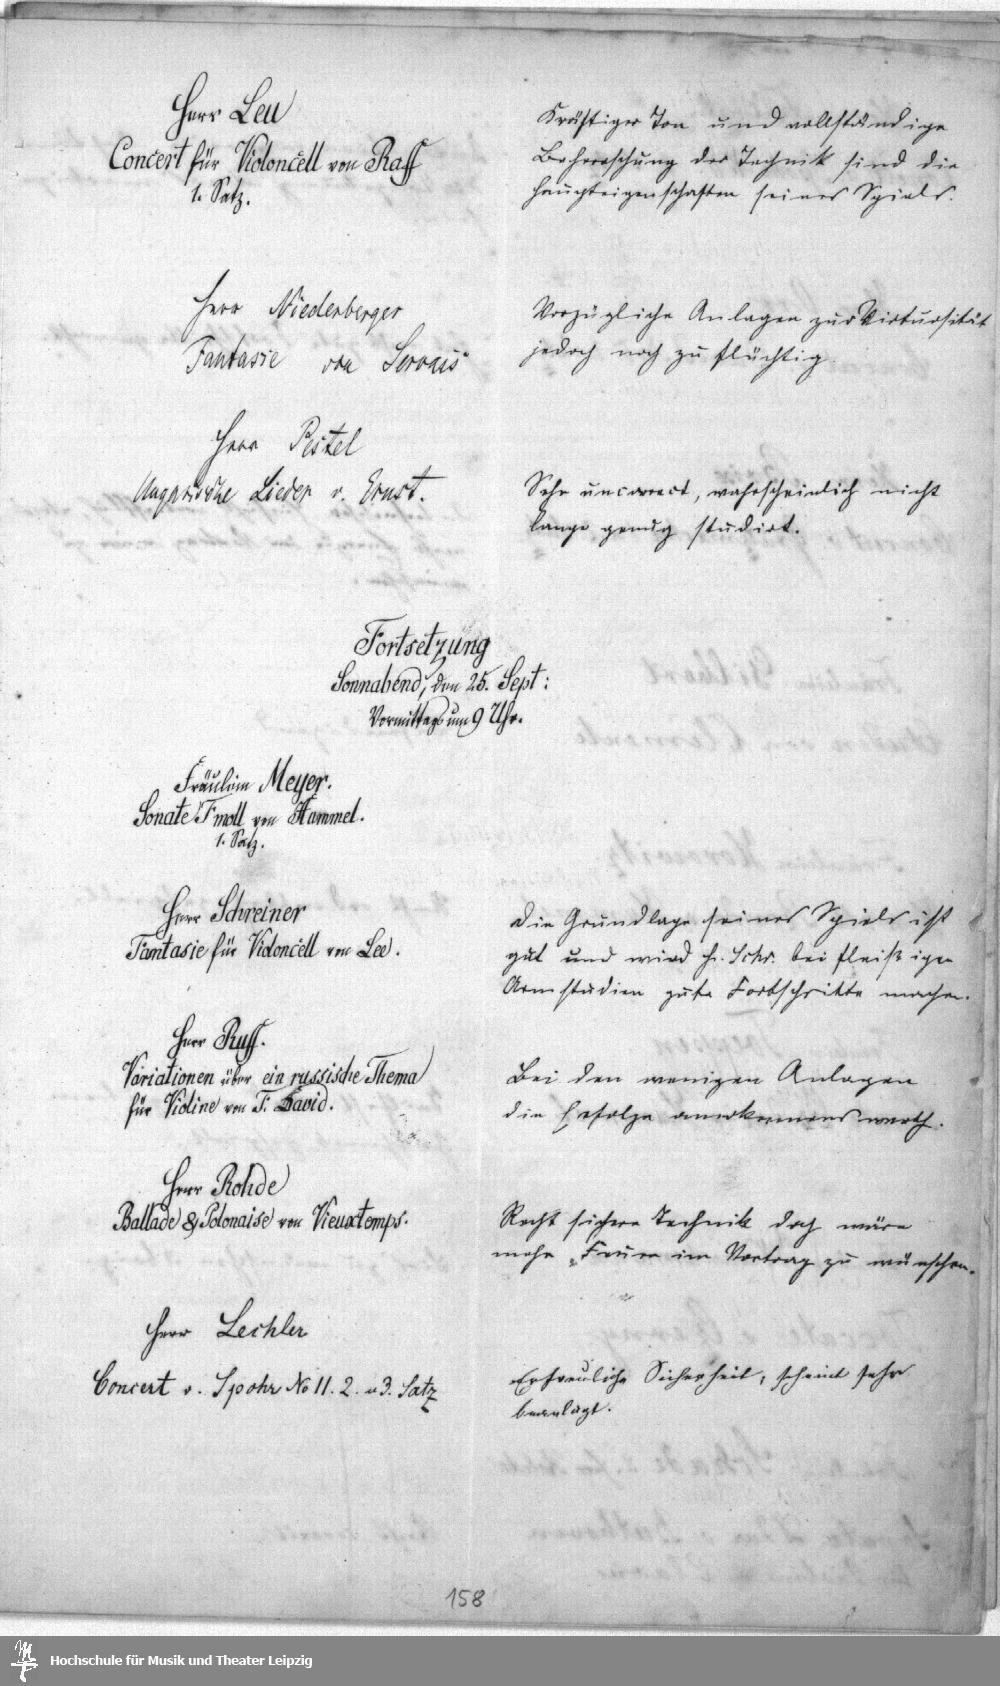 Herr Leu
Concert für Violoncell von Raff
1. Satz.
Kräftiger Ton und vollständige
Beherrschung der Technik sind die
Haupteigenschaften seines Spiels.
Herr Niederberger
Fantasie von Servais
Vorzügliche Anlagen zur Virtuosität
jedoch noch zu flüchtig.
Herr Pestel
Ungarische Lieder v. Ernst.
Sehr uncorrect, wahrscheinlich nicht
lange genug studirt.
Fortsetzung
Sonnabend, den 25. Sept:
Vormittags um 9 Uhr.
Fräulein Meyer.
Sonate Fmoll von Hummel.
1. Satz.
Herr Schreiner
Fantasie für Violoncell von Lee.
Die Grundlage seines Spiels ist
gut und wird H. Schr. bei fleißigen
Armstudien gute Fortschritte machen.
Herr Ruff.
Variationen über ein russische Thema
für Violine von F. David.
Bei den wenigen Anlagen
die Erfolge anerkennenswerth.
Herr Rohde
Ballade & Polonaise von Vieuxtemps.
Recht sichere Technik doch wäre
mehr Feuer im Vortrag zu wünschen.
Herr Lechler
Concert v. Spohr No 11. 2. u 3. Satz
Erfreuliche Sicherheit, scheint sehr
beanlagt.
158
Hochschule für Musik und Theater Leipzig